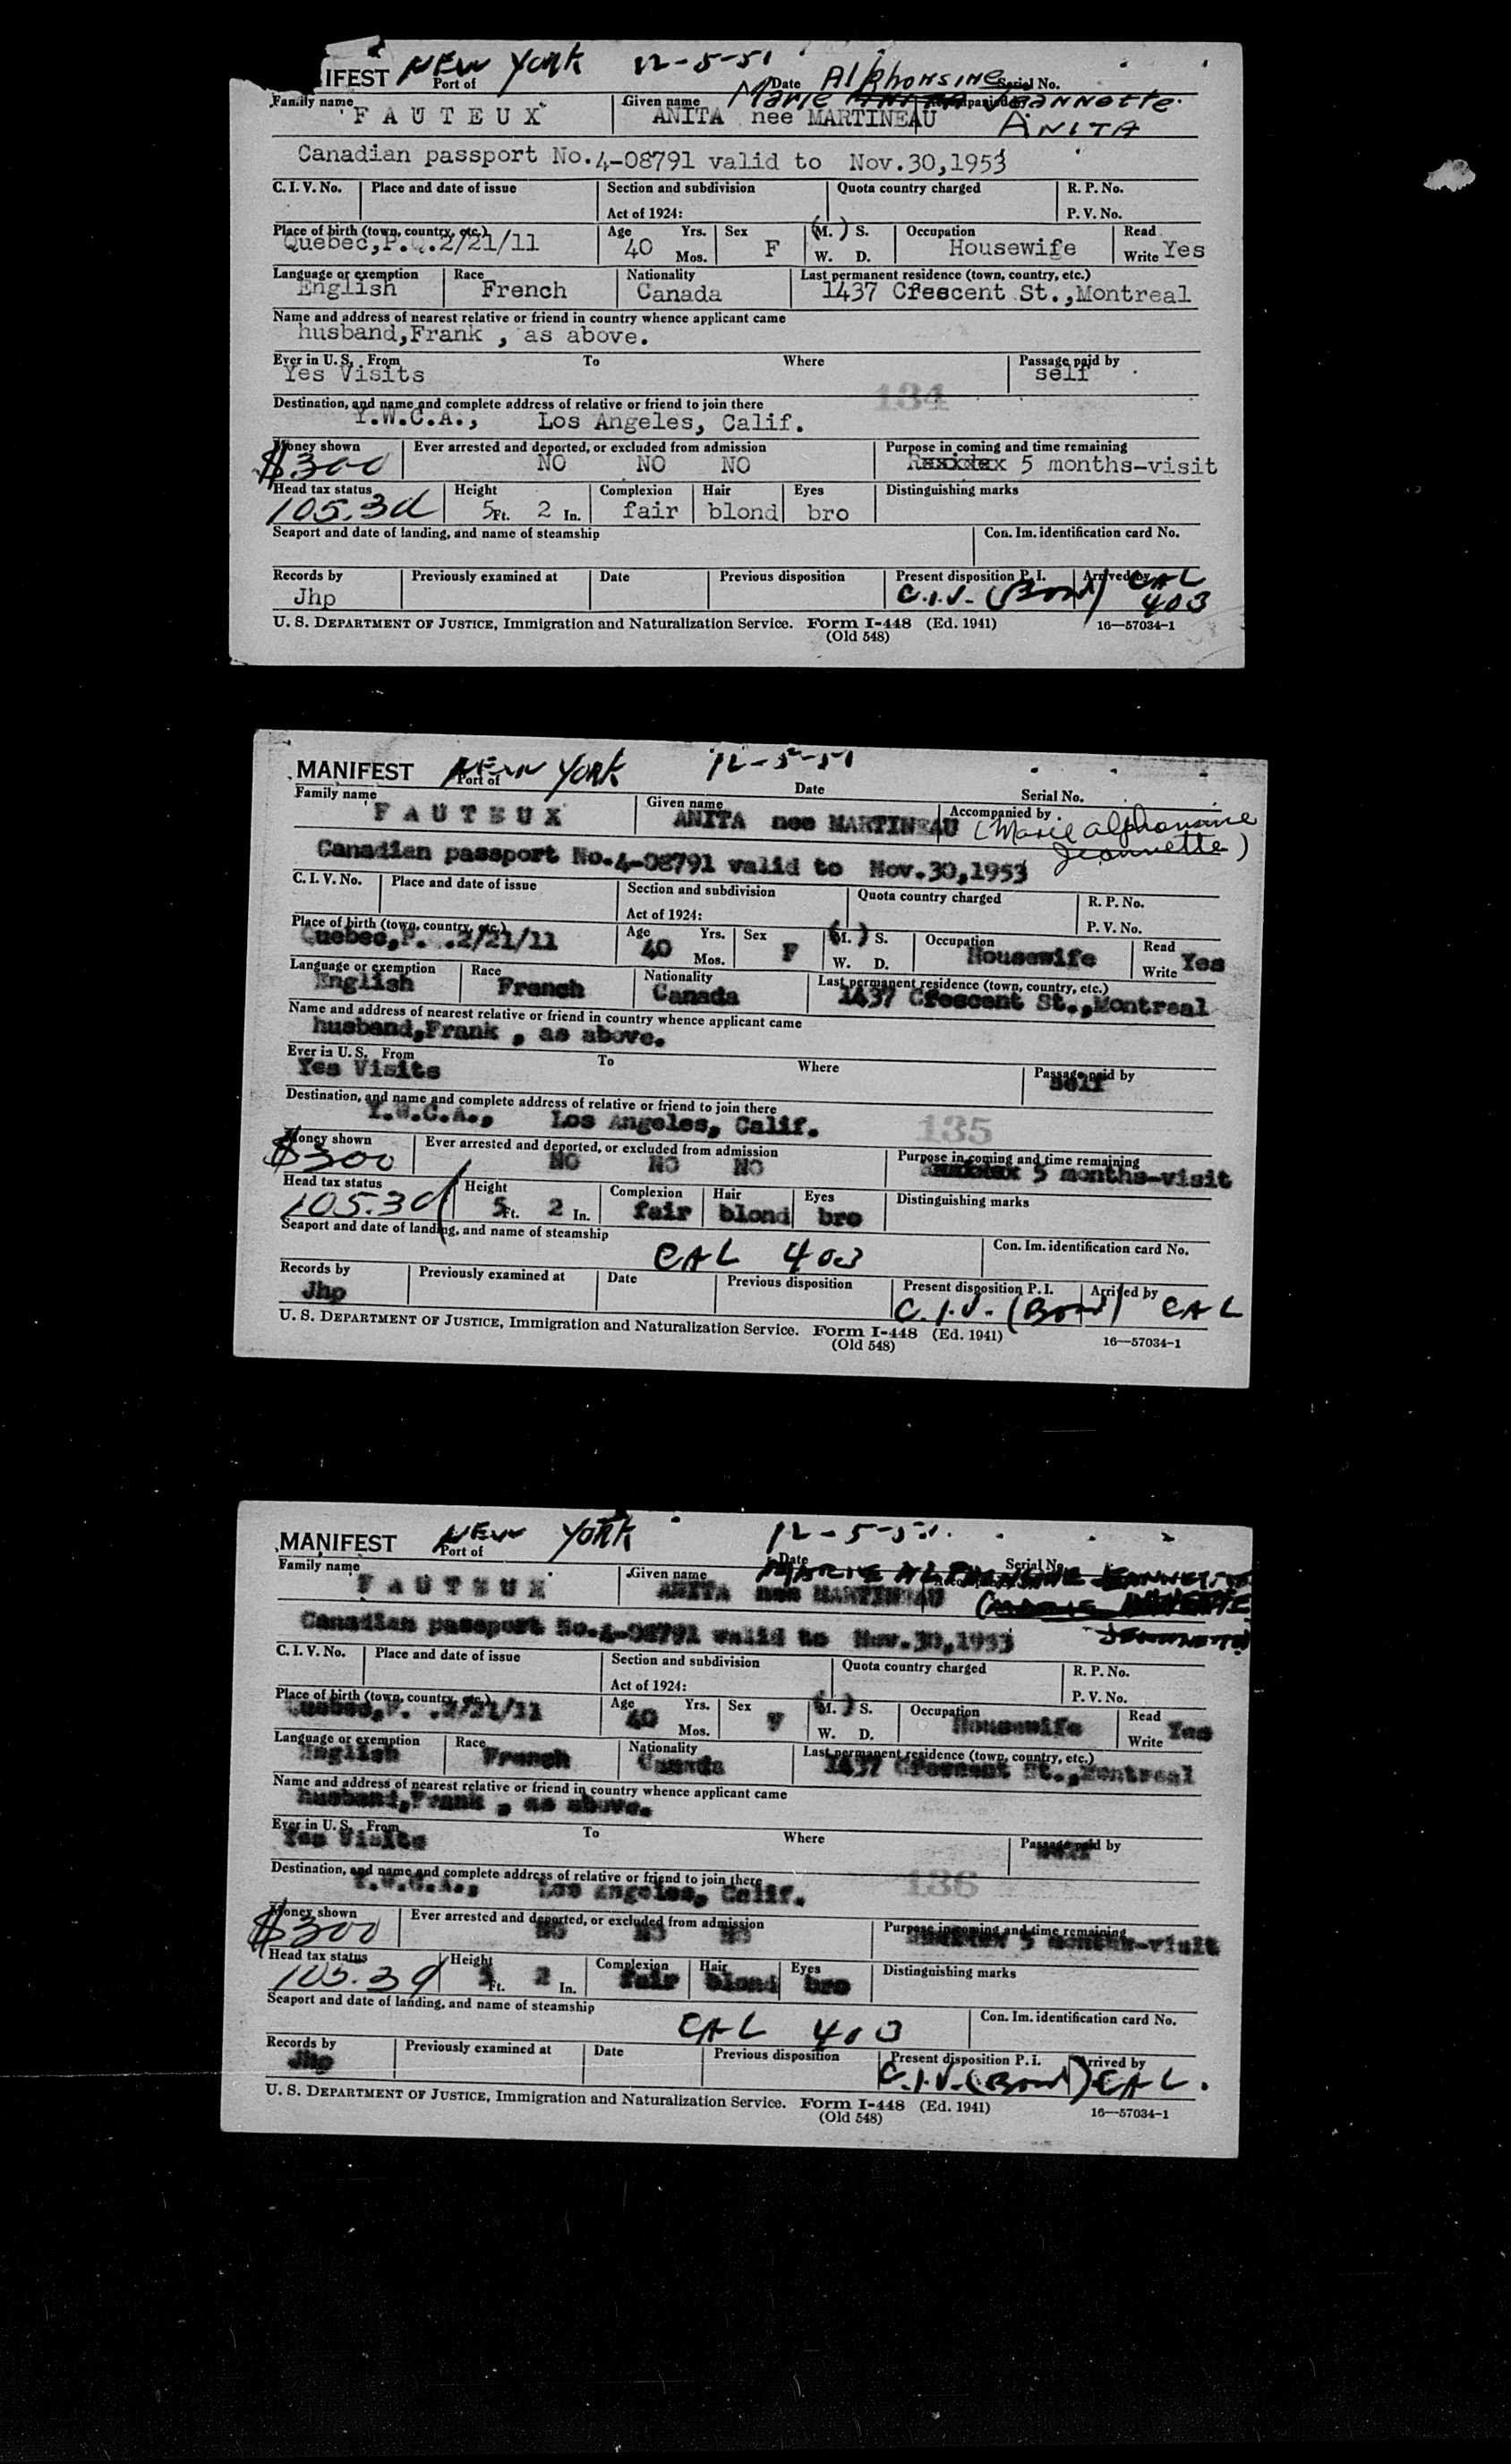 IFEST NEW YORK 12-5-51
Port of Date Alphonsine Serial No.
Family name Given name Marie Jeannette
FAUTEUX ANITA nee MARTINEAU ANITA
Canadian passport No.4-08791 valid to Nov.30,1953
C. I. V. No. Place and date of issue Section and subdivision Quota country charged R. P. No.
Act of 1924: P. V. No.
Place of birth (town, country, etc.) Age Yrs. Sex (M.) S. Occupation Read
Quebec,P.Q.2/21/11 40 Mos. F W. D. Housewife Write Yes
Language or exemption Race Nationality Last permanent residence (town, country, etc.)
English French Canada 1437 Crescent St.,Montreal
Name and address of nearest relative or friend in country whence applicant came
husband,Frank , as above.
Ever in U. S. From To Where Passage paid by
Yes Visits self
134
Destination, and name and complete address of relative or friend to join there
Y.W.C.A., Los Angeles, Calif.
Money shown Ever arrested and deported, or excluded from admission Purpose in coming and time remaining
$300 NO NO NO 5 months-visit
Head tax status Height Complexion Hair Eyes Distinguishing marks
105.3d 5 Ft. 2 In. fair blond bro
Seaport and date of landing, and name of steamship Con. Im. identification card No.
Records by Previously examined at Date Previous disposition Present disposition P. I. Arrived by CAL
Jhp C.I.V. (Bond) 403
U. S. DEPARTMENT OF JUSTICE, Immigration and Naturalization Service. Form I-448 (Ed. 1941) 16—57034-1
(Old 548)
MANIFEST NEW YORK 12-5-51
Port of Date Serial No.
Family name Given name Accompanied by
FAUTEUX ANITA nee MARTINEAU (Marie Alphonsine
Jeannette)
Canadian passport No.4-08791 valid to Nov.30,1953
C. I. V. No. Place and date of issue Section and subdivision Quota country charged R. P. No.
Act of 1924: P. V. No.
Place of birth (town, country, etc.) Age Yrs. Sex (M.) S. Occupation Read
Quebec,P. .2/21/11 40 Mos. F W. D. Housewife Write Yes
Language or exemption Race Nationality Last permanent residence (town, country, etc.)
English French Canada 1437 Crescent St.,Montreal
Name and address of nearest relative or friend in country whence applicant came
husband,Frank , as above.
Ever in U. S. From To Where Passage paid by
Yes Visits self
Destination, and name and complete address of relative or friend to join there
Y.W.C.A., Los Angeles, Calif. 135
Money shown Ever arrested and deported, or excluded from admission Purpose in coming and time remaining
$300 NO NO NO 5 months-visit
Head tax status Height Complexion Hair Eyes Distinguishing marks
105.3d 5 Ft. 2 In. fair blond bro
Seaport and date of landing, and name of steamship Con. Im. identification card No.
CAL 403
Records by Previously examined at Date Previous disposition Present disposition P. I. Arrived by
Jhp C.I.V. (Bond) CAL
U. S. DEPARTMENT OF JUSTICE, Immigration and Naturalization Service. Form I-448 (Ed. 1941) 16—57034-1
(Old 548)
MANIFEST NEW YORK 12-5-51
Port of Date Serial No.
Family name Given name MARIE ALPHONSINE JEANNETTE
FAUTEUX ANITA nee MARTINEAU
Canadian passport No.4-08791 valid to Nov.30,1953
C. I. V. No. Place and date of issue Section and subdivision Quota country charged R. P. No.
Act of 1924: P. V. No.
Place of birth (town, country, etc.) Age Yrs. Sex (M.) S. Occupation Read
Quebec,P. .2/21/11 40 Mos. F W. D. Housewife Write Yes
Language or exemption Race Nationality Last permanent residence (town, country, etc.)
English French Canada 1437 Crescent St.,Montreal
Name and address of nearest relative or friend in country whence applicant came
husband,Frank , as above.
Ever in U. S. From To Where Passage paid by
Yes Visits self
Destination, and name and complete address of relative or friend to join there
Y.W.C.A., Los Angeles, Calif. 136
Money shown Ever arrested and deported, or excluded from admission Purpose in coming and time remaining
$300 NO NO NO 5 months-visit
Head tax status Height Complexion Hair Eyes Distinguishing marks
105.3d 5 Ft. 2 In. fair blond bro
Seaport and date of landing, and name of steamship Con. Im. identification card No.
CAL 403
Records by Previously examined at Date Previous disposition Present disposition P. I. Arrived by
Jhp C.I.V. (Bond) CAL.
U. S. DEPARTMENT OF JUSTICE, Immigration and Naturalization Service. Form I-448 (Ed. 1941) 16—57034-1
(Old 548)